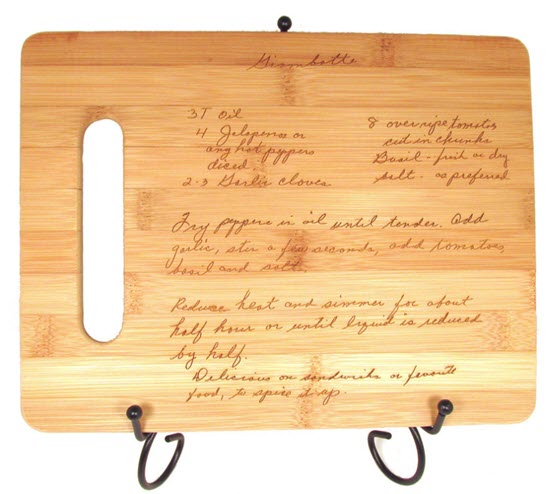 Giambotte
3T Oil
4 Jalapenos or
any hot peppers
diced
2-3 Garlic cloves
8 overripe tomatoes
cut in chunks
Basil - fresh or dry
salt - as preferred
Fry peppers in oil until tender. Add
garlic, stir a few seconds, add tomatoes,
basil and salt.
Reduce heat and simmer for about
half hour or until liquid is reduced
by half.
Delicious on sandwichs or favorite
food, to spice it up.